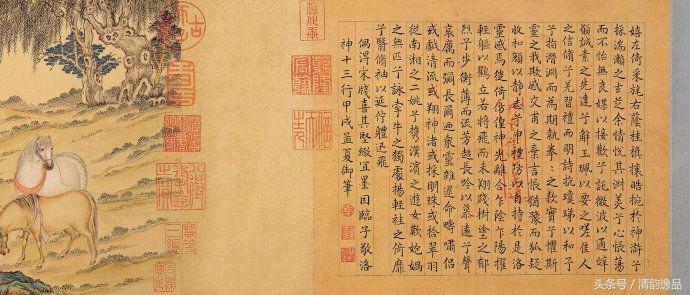 嬉左倚采旄右蔭桂旗攘皓腕於神滸兮
採湍瀨之玄芝余情悅其淑美兮心振蕩
而不怡無良媒以接歡兮託微波以通辭
願誠素之先達兮解玉珮以要之嗟佳人
之信脩兮羌習禮而明詩抗瓊珶以和予
兮指潛淵而為期執拳:之款實兮懼斯
靈之我欺感交甫之棄言悵猶豫而狐疑
收和顏以靜志兮申禮防以自持於是洛
靈感焉徙倚仿偟神光離合乍陰乍陽擢
輕軀以鶴立若將飛而未翔踐椒塗之郁
烈兮步衡薄而流芳超長吟以慕遠兮聲
哀厲而彌長爾迺衆靈雜遝命疇嘯侶
或戲清流或翔神渚或採明珠或拾翠羽
從南湘之二姚兮攜漢濱之游女歎匏媧
之無匹兮詠牽牛之獨處揚輕袿之倚靡
兮翳脩袖以延佇體迅飛
偶得宋牋喜其堅緻宜墨因臨子敬洛
神十三行甲戌孟夏御筆
乾隆宸翰
头条号 / 清韵逸品